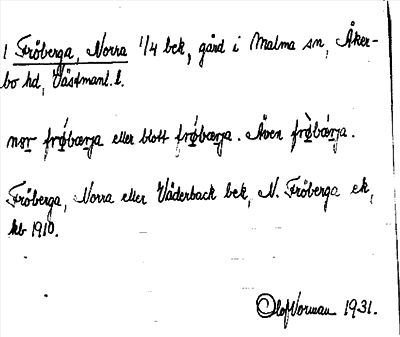 1 Fröberga, Norra 1/4 bek, gård i Malma sn, Åker-
bo hd, Västmanl. l.
nor frǿbærja eller blott frǿbærja. Även frø̀bǽrja.
Fröberga, Norra eller Väderback bek, N. Fröberga ek,
kb 1910.
Olof Norman 1931.